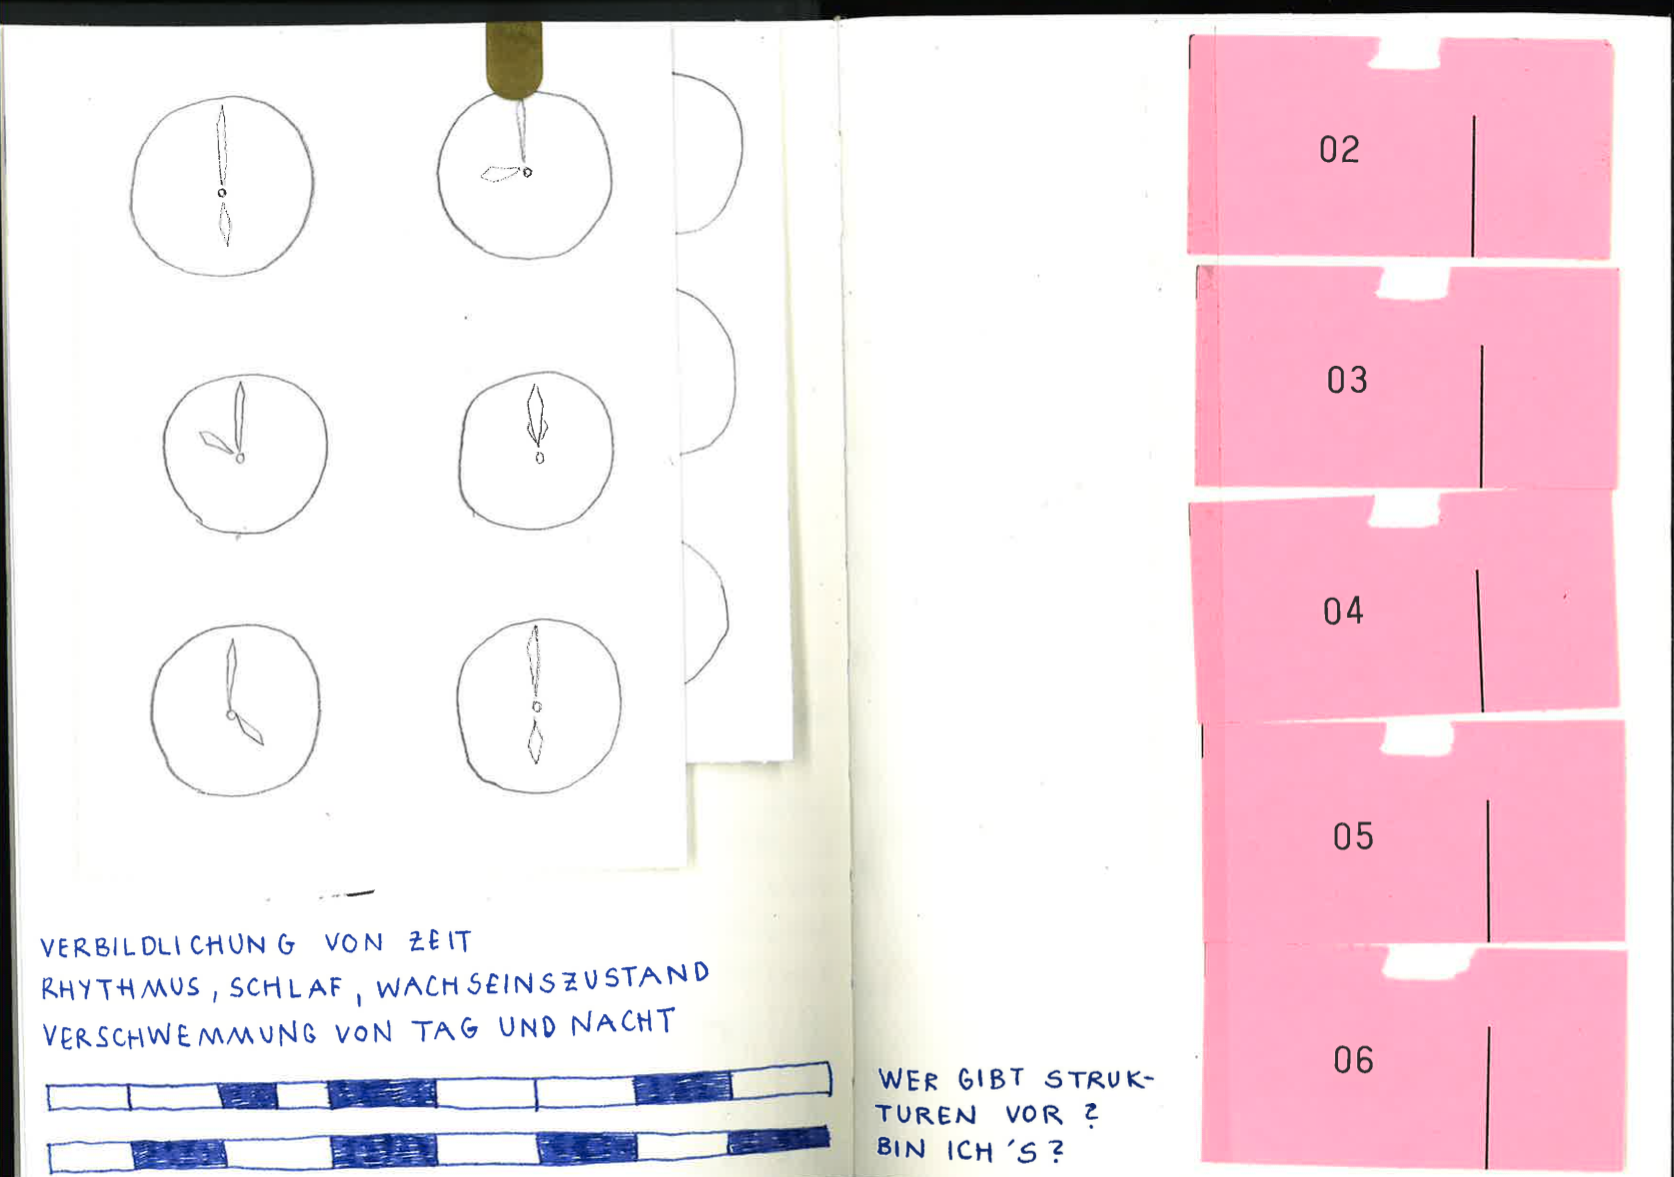 VERBILDLICHUNG VON ZEIT
RHYTHMUS, SCHLAF, WACHSEINSZUSTAND
VERSCHWEMMUNG VON TAG UND NACHT
WER GIBT STRUK-
TUREN VOR?
BIN ICH'S?
02
03
04
05
06